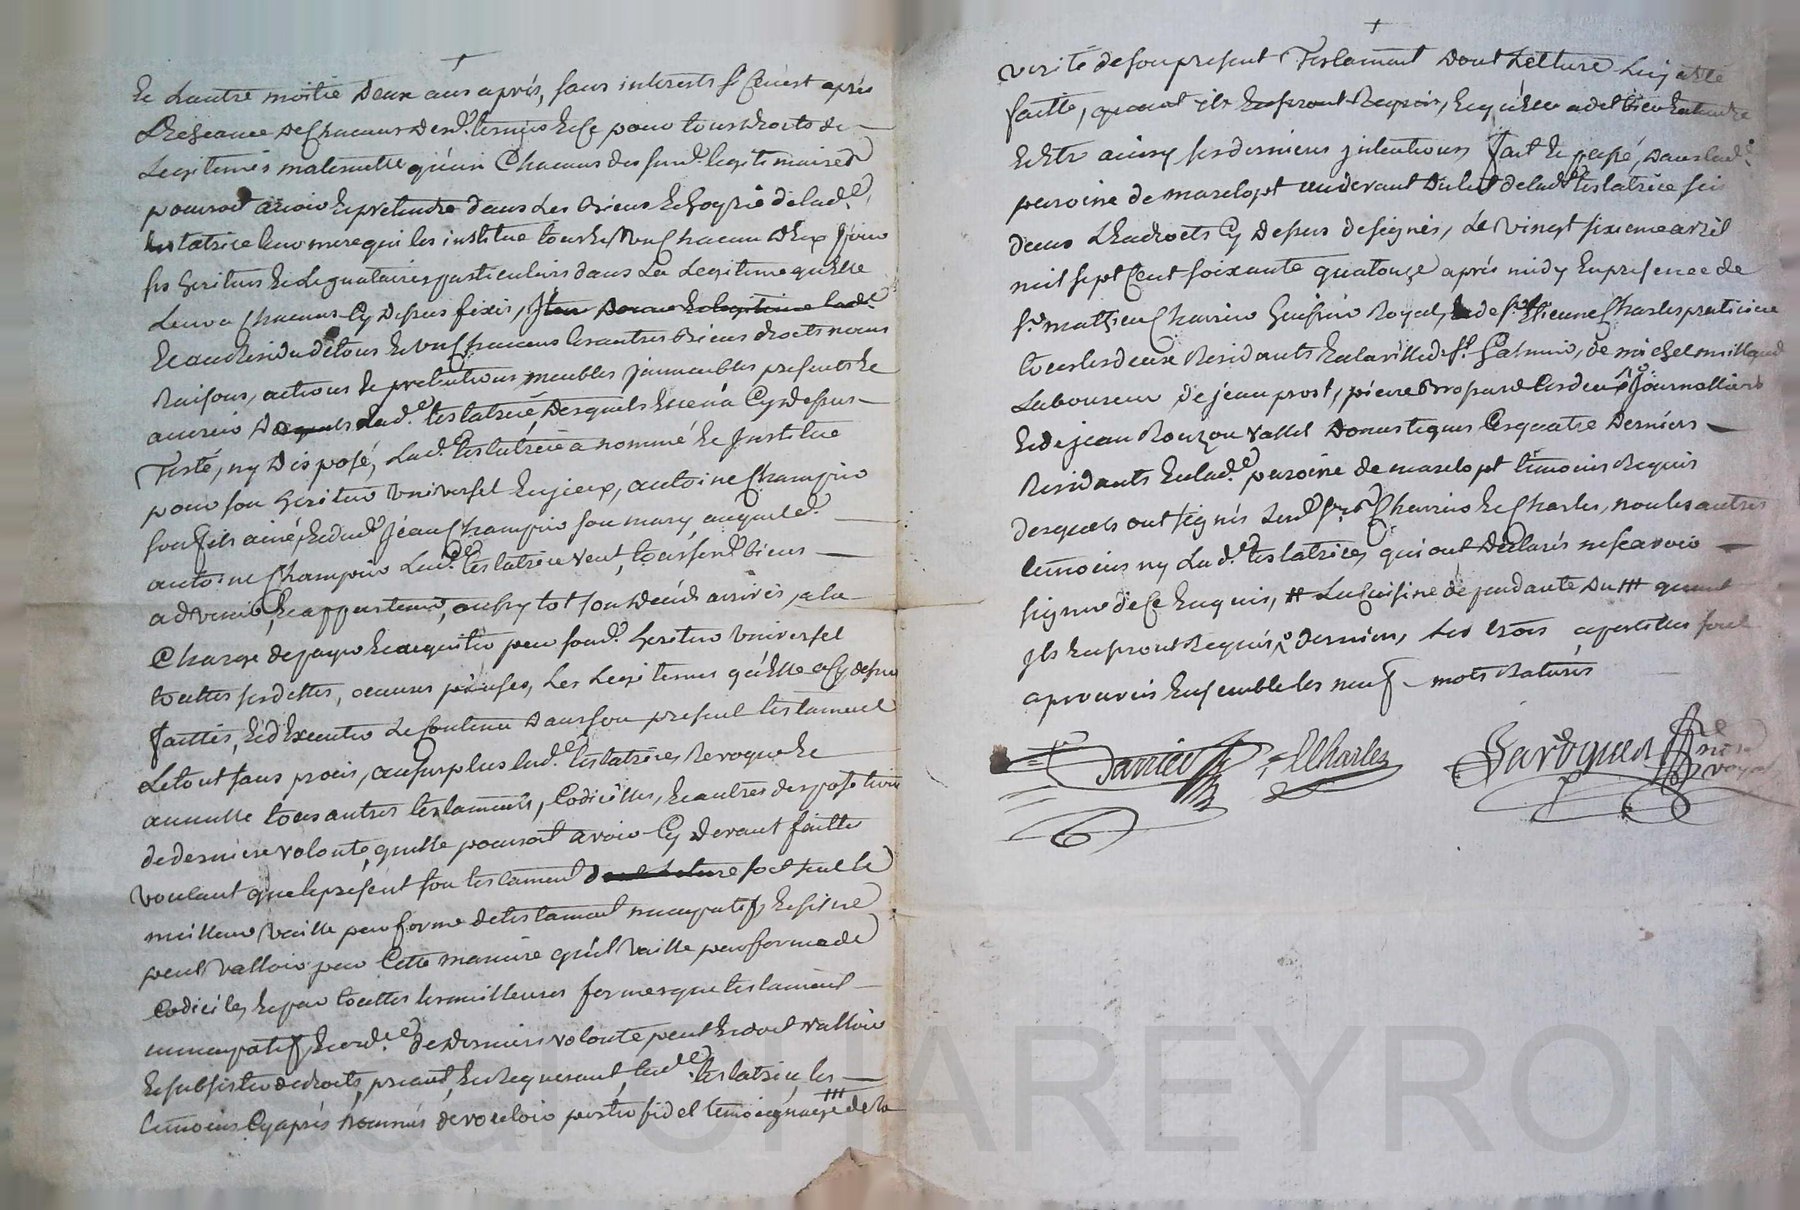 et l'autre moitié deux ans après, sans interests sy ce n'est après
l'echeance de chacuns desd. termes et ce pour tous droits de
legitimes maternelle qu'un chacuns des susd. legitimaires
pouroit avoir et pretendre dans les biens et hoyrie de lad.e
testatrice leur mere qui les institue tous et un chacun d'eux pour
ses heritiers et leguataires particuliers dans la legitime qu'elle
leur a chacuns cy dessus fixés, Item donne et legitime lad.e
et au residu de tous et uns chacuns les autres biens droits noms
raisons, actions et pretentions meubles jmmeubles presents et
avenir desquels lad.e testatrice, desquels elle n'a cy dessus
Testé, ny disposé, lad. testatrice a nommé et Jnstitué
pour son heritier universel en jceux, antoine Champier
son fils ainé, et dud. Jean Champier son mary, auquel d.
antoine Champier lad.e testatrice veut, tous ses d. biens
advenir, et appartenir, aussy tot son decéds arrivés, a la
charge de payer et acquiter par son d. heritier universel
touttes ses dettes, oeuvres pieuses, les legitimes qu'elle a cy dessus
faittes, et d'executer le contenu dans son present testament
le tout sans procés, au surplus lad.e testatrice revoque et
annulle tous autres testaments, codicilles, et autres dispositions
de derniere volonté, qu'elle pouroit avoir cy devant faitte
voulant que le present son testament dont lecture soit seul le
meilleur vaille par forme de testament nuncupatif et si ne
peut valloir par cette maniere qu'il vaille par forme de
codiciles et par touttes les meilleures formes que testament
nuncupatif, et ord.re de derniere volonté peut et doit valloir
et subsister de droits, priant, et requerant, lad.e testatrice, les
témoins cy après nommés de vouloir porter fidel témoignage de la
verité de son present Testament dont Lecture luy a été
faitte, quant ils en seront requis, et qu'elle a dit bien entendre
et être ainsy ses dernieres jntentions, fait et passé, dans lad.e
paroisse de marclopt au devant du lit de lad.e testatrice scis
dans l'endroits cy dessus designés, le vingt sixieme avril
mil sept cent soixante quatorze après midy en presence de
s.r mathieu Charrier huissier Royal, et de s.r Etienne Charles praticien
tous les deux residants en la ville de s.t Galmier, de michel millaud
laboureur, de jean prost, pierre Brossard les deux journalliers
et de jean Rouzon vallet Domestiques les quatre derniers
residants en lad.e paroisse de marclopt témoins requis
desquels ont signés lesd. s.rs Charrier et Charles, non les autres
témoins ny lad.e testatrice, qui ont declarés ne scavoir
signer de ce enquis, # la cuisine dépendante du ### quant
jls en seront requis, dernier, les trois apostilles sont
aprouvés ensemble les neuf mots raturés
Charrier
E Charles
Pardoguen n.re royal
CHAREYRON